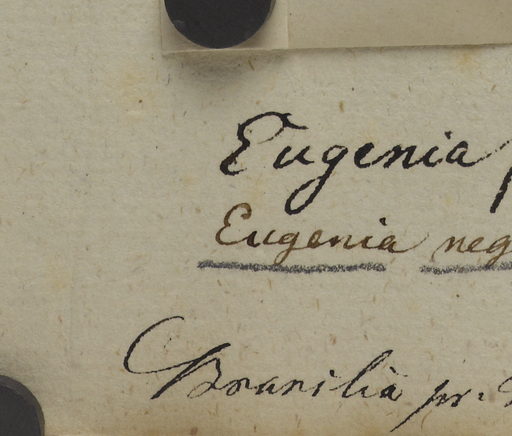 Eugenia
Eugenia neg
Brasilia pr.